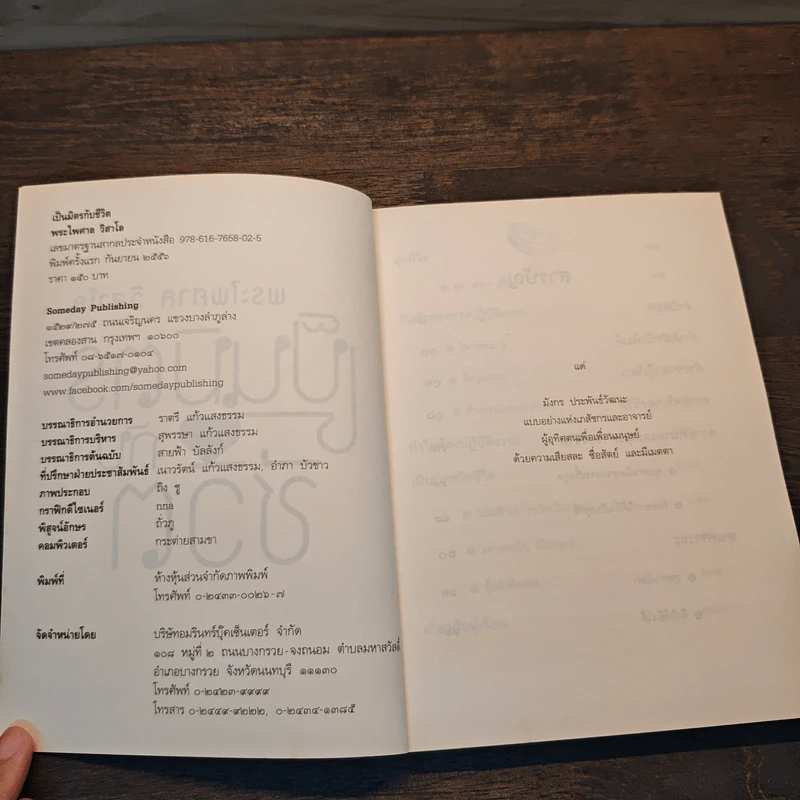 เป็นมิตรกับชีวิต
พระไพศาล วิสาโล
เลขมาตรฐานสากลประจำหนังสือ 978-616-7658-02-5
พิมพ์ครั้งแรก กันยายน ๒๕๕๖
ราคา ๑๕๐ บาท
Someday Publishing
๑๕๒๙/๒๗๕ ถนนเจริญนคร แขวงบางลำภูล่าง
เขตคลองสาน กรุงเทพฯ ๑๐๖๐๐
โทรศัพท์ ๐๘-๖๕๑๗-๐๑๐๔
somedaypublishing@yahoo.com
www.facebook.com/somedaypublishing
บรรณาธิการอำนวยการ ราตรี แก้วแสงธรรม
บรรณาธิการบริหาร สุพรรษา แก้วแสงธรรม
บรรณาธิการต้นฉบับ สายฟ้า บัลลังก์
ที่ปรึกษาฝ่ายประชาสัมพันธ์ เนาวรัตน์ แก้วแสงธรรม, อำภา บัวขาว
ภาพประกอบ ถิง ชู
กราฟิกดีไซเนอร์ กกก
พิสูจน์อักษร ถั่วภู
คอมพิวเตอร์ กระต่ายสามขา
พิมพ์ที่ ห้างหุ้นส่วนจำกัดภาพพิมพ์
โทรศัพท์ ๐-๒๔๓๓-๐๐๒๖-๗
จัดจำหน่ายโดย บริษัทอมรินทร์บุ๊คเซ็นเตอร์ จำกัด
๑๐๘ หมู่ที่ ๒ ถนนบางกรวย-จงถนอม ตำบลมหาสวัสดิ์
อำเภอบางกรวย จังหวัดนนทบุรี ๑๑๑๓๐
โทรศัพท์ ๐-๒๔๒๓-๙๙๙๙
โทรสาร ๐-๒๔๔๙-๙๒๒๒, ๐-๒๔๓๔-๑๓๘๕
แด่
มังกร ประพันธ์วัฒนะ
แบบอย่างแห่งเภสัชกรและอาจารย์
ผู้อุทิศตนเพื่อเพื่อนมนุษย์
ด้วยความเสียสละ ซื่อสัตย์ และมีเมตตา